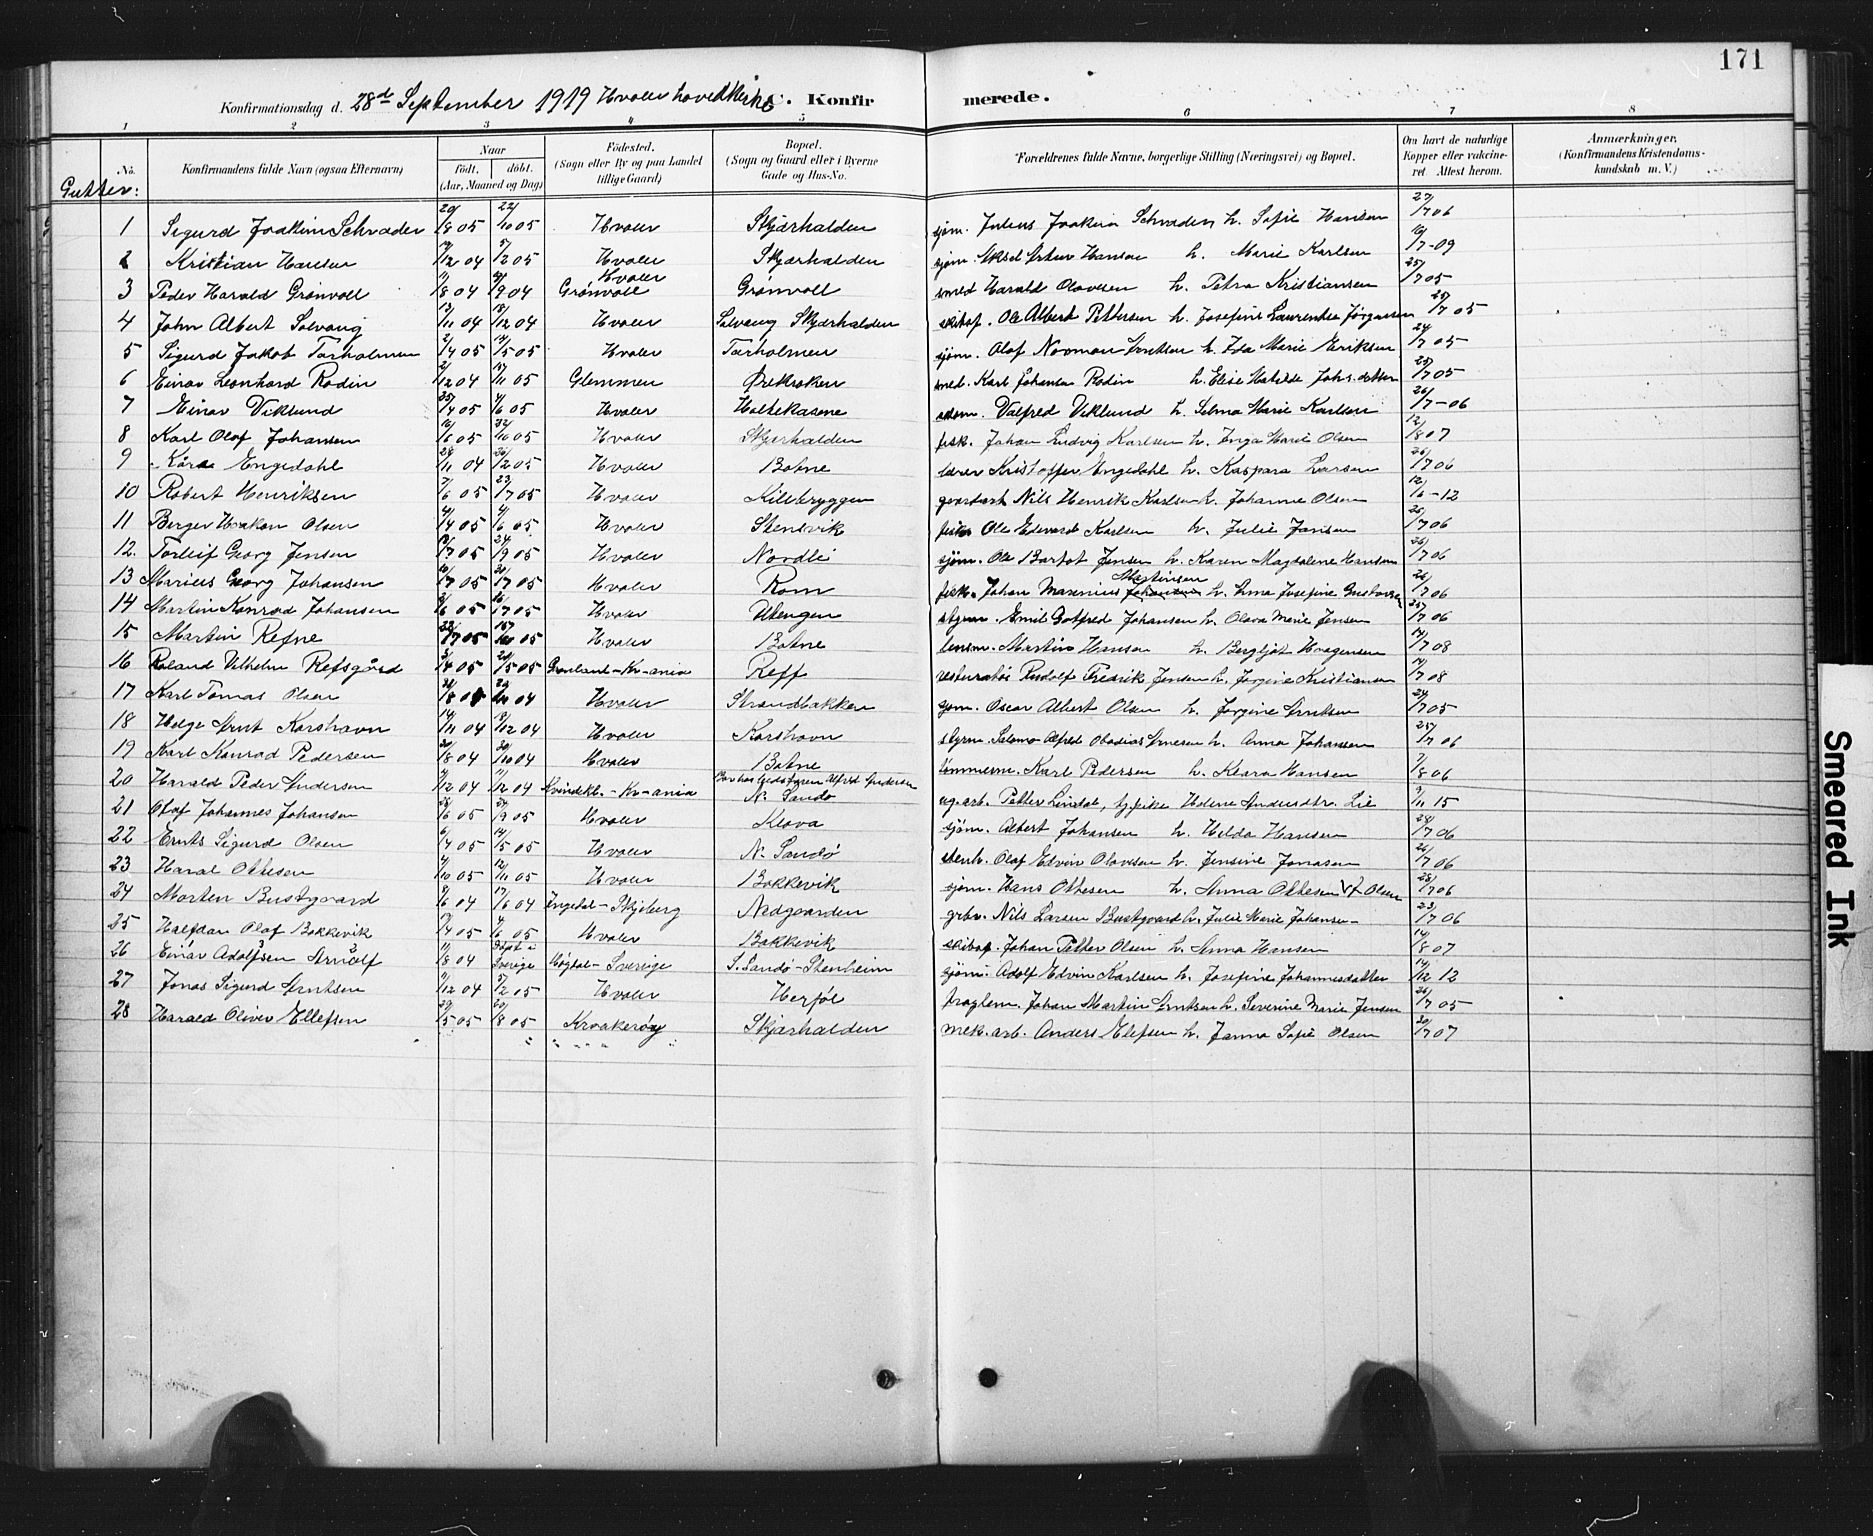 171
Konfirmationsdag d. 28d September 1919 Hvaler hovedkirke C. Konfirmerede.
1 2 3 4 5 6 7 8
No.
Konfirmandens fulde Navn (ogsaa Efternavn)
Naar født. døbt. (Aar, Maaned og Dag)
Fødested. (Sogn eller By og paa Landet tillige Gaard)
Bopæl. (Sogn og Gaard eller i Byerne Gade og Hus-No.
Forældrenes fulde Navne, borgerlige Stilling (Næringsvei) og Bopæl.
Om havt de naturlige Kopper eller vakcineret Attest herom.
Anmærkninger. (Konfirmandens Kristendomskundskab m. V.)
Gutter:
1 Sigurd Joakim Schrader 20/8 05 22/10 05 Hvaler Skjærhalden sjøm. Julius Joakim Schrader h. Sofie Hansen 27/7 06
2 Kristian Hansen /12 04 5/2 05 Hvaler Skjærhalden sjøm. Aksel Artur Hansen h. Marie Karlsen /7-09
3 Peder Harald Grønvoll 11/8 04 /9 04 Hvaler Grønvoll Grønvoll smed Harald Olavesen h. Petra Kristiansen 25/7 05
4 John Albert Solvang 13/11 04 18/12 04 Hvaler Solvang Skjærhalden skibsf. Ole Albert Pettersen h. Josefine Laurentse Jørgensen 25/7 05
5 Sigurd Jakob Tarholmen 2/4 05 14/5 05 Hvaler Tarholmen sjøm. Olaf Norman Arntsen h. Ida Marie Eriksen 24/7 05
6 Einar Leonhard Rodin 2/12 04 /11 05 Glemmen Ørekroken smed. Karl Johansen Rodin h. Elise Matilde Johs.datter 25/7 05
7 Einar Viklund 25/4 05 4/6 05 Hvaler Holtekasene Valfred Viklund h. Selma Marie Karlsen 26/7-06
8 Karl Olaf Johansen 10/6 05 22/10 05 Hvaler Skjærhalden fisk. Johan Ludvig Karlsen h. Inga Marie Olsen 12/8 07
9 Kåre Engedahl 28/11 04 26/2 05 Hvaler Botne lærer Kristoffer Engedahl h. Kaspara Larsen 26/7 06
10 Robert Henriksen 7/6 05 23/7 05 Hvaler Killebryggen Nils Henrik Karlsen h. Johanne Olsen 12/6-12
11 Berger Haakon Olsen 4/4 05 4/6 05 Hvaler Stensvik fisker Ole Edvard Karlsen h. Julie Jansen 26/7 06
12. Torleif Georg Jensen /7 05 24/9 05 Hvaler Nordli sjøm. Ole Bartot Jensen h. Karen Magdalene Hansen 26/7 06
13 Marius Georg Johansen 10/7 05 20/7 05 Hvaler Rom fisk. Johan Marinius Johansen Martinsen h. Anna Josefine Gustavsen 26/7 06
14 Martin Konrad Johansen 2/6 05 16/7 05 Hvaler Utengen styrm. Emil Gotfred Johansen h. Olava Marie Jensen 25/7 06
15 Martin Refne 22/7 05 15/10 05 Hvaler Botne lensm. Martin Hansen h. Bergljot Haagensen 14/7 08
16 Roland Vilhelm Refsgård 3/4 05 28/5 05 Grønland-Kr-ania Reff restauratør Rudolf Fredrik Jensen h. Jørgine Kristiansen 14/7 08
17 Karl Tomas Olsen /8 04 /10 04 Hvaler Strandbakken sjøm. Oscar Albert Olsen h. Jørgine Arntsen 24/7 05
18 Helge Arnt Korshavn 14/11 04 18/12 04 Hvaler Korshavn styrm. Salomo Alfred Obadias Arnesen h. Anna Johansen 25/7 06
19 Karl Konrad Pedersen 20/8 04 30/10 04 Hvaler Botne tømmerm. Karl Pedersen h. Klara Hansen /8 06
20 Harald Peder Andersen 9/12 04 11/12 04 Kvindekl.-Kr-ania Alfred Andersen N. Sandø Petter Lindal, tj.pike Helene Andersdtr. Lie 3/11 15
21 Olaf Johannes Johansen 28/6 05 24/9 05 Hvaler Klova sjøm. Albert Johansen h. Hilda Hansen 28/7 06
22 Ernts Sigurd Olsen 6/4 05 14/5 05 Hvaler N. Sandø stenh. Olaf Edvin Olavesen h. Jensine Jonasen 26/7 06
23 Haral Ottesen 4/10 05 12/11 05 Hvaler Bakkevik sjøm. Hans Ottesen h. Anna Ottesen f. Olsen 28/7 06
24 Morten Bustgaard 8/6 04 17/6 04 Ingedal-Skjeberg Nedgaarden grbr. Nils Larsen Bustgaard h. Julie Marie Johansen 23/7 06
25 Halfdan Olaf Bakkevik 17/4 05 4/6 05 Hvaler Bakkevik skibsf. Johan Petter Olsen h. Anna Hansen 14/8 07
26 Einar Adolfsen Arnolf 11/8 04 Døpt i Sverige Høgdal-Sverige S. Sandø-Stenheim sjøm. Adolf Edvin Karlsen h. Josefine Johannisdatter 14/12 12
27 Jonas Sigurd Arntsen 11/12 04 5/2 05 Hvaler Herføl Johan Martin Arntsen h. Severine Marie Jensen 26/7 05
28 Harald Oliver Ellefsen 29/5 05 20/8 05 Kraakerøy Skjærhalden mek.arb. Anders Elefsen h. Janna Sofie Olsen 20/7 07
Smeared Ink